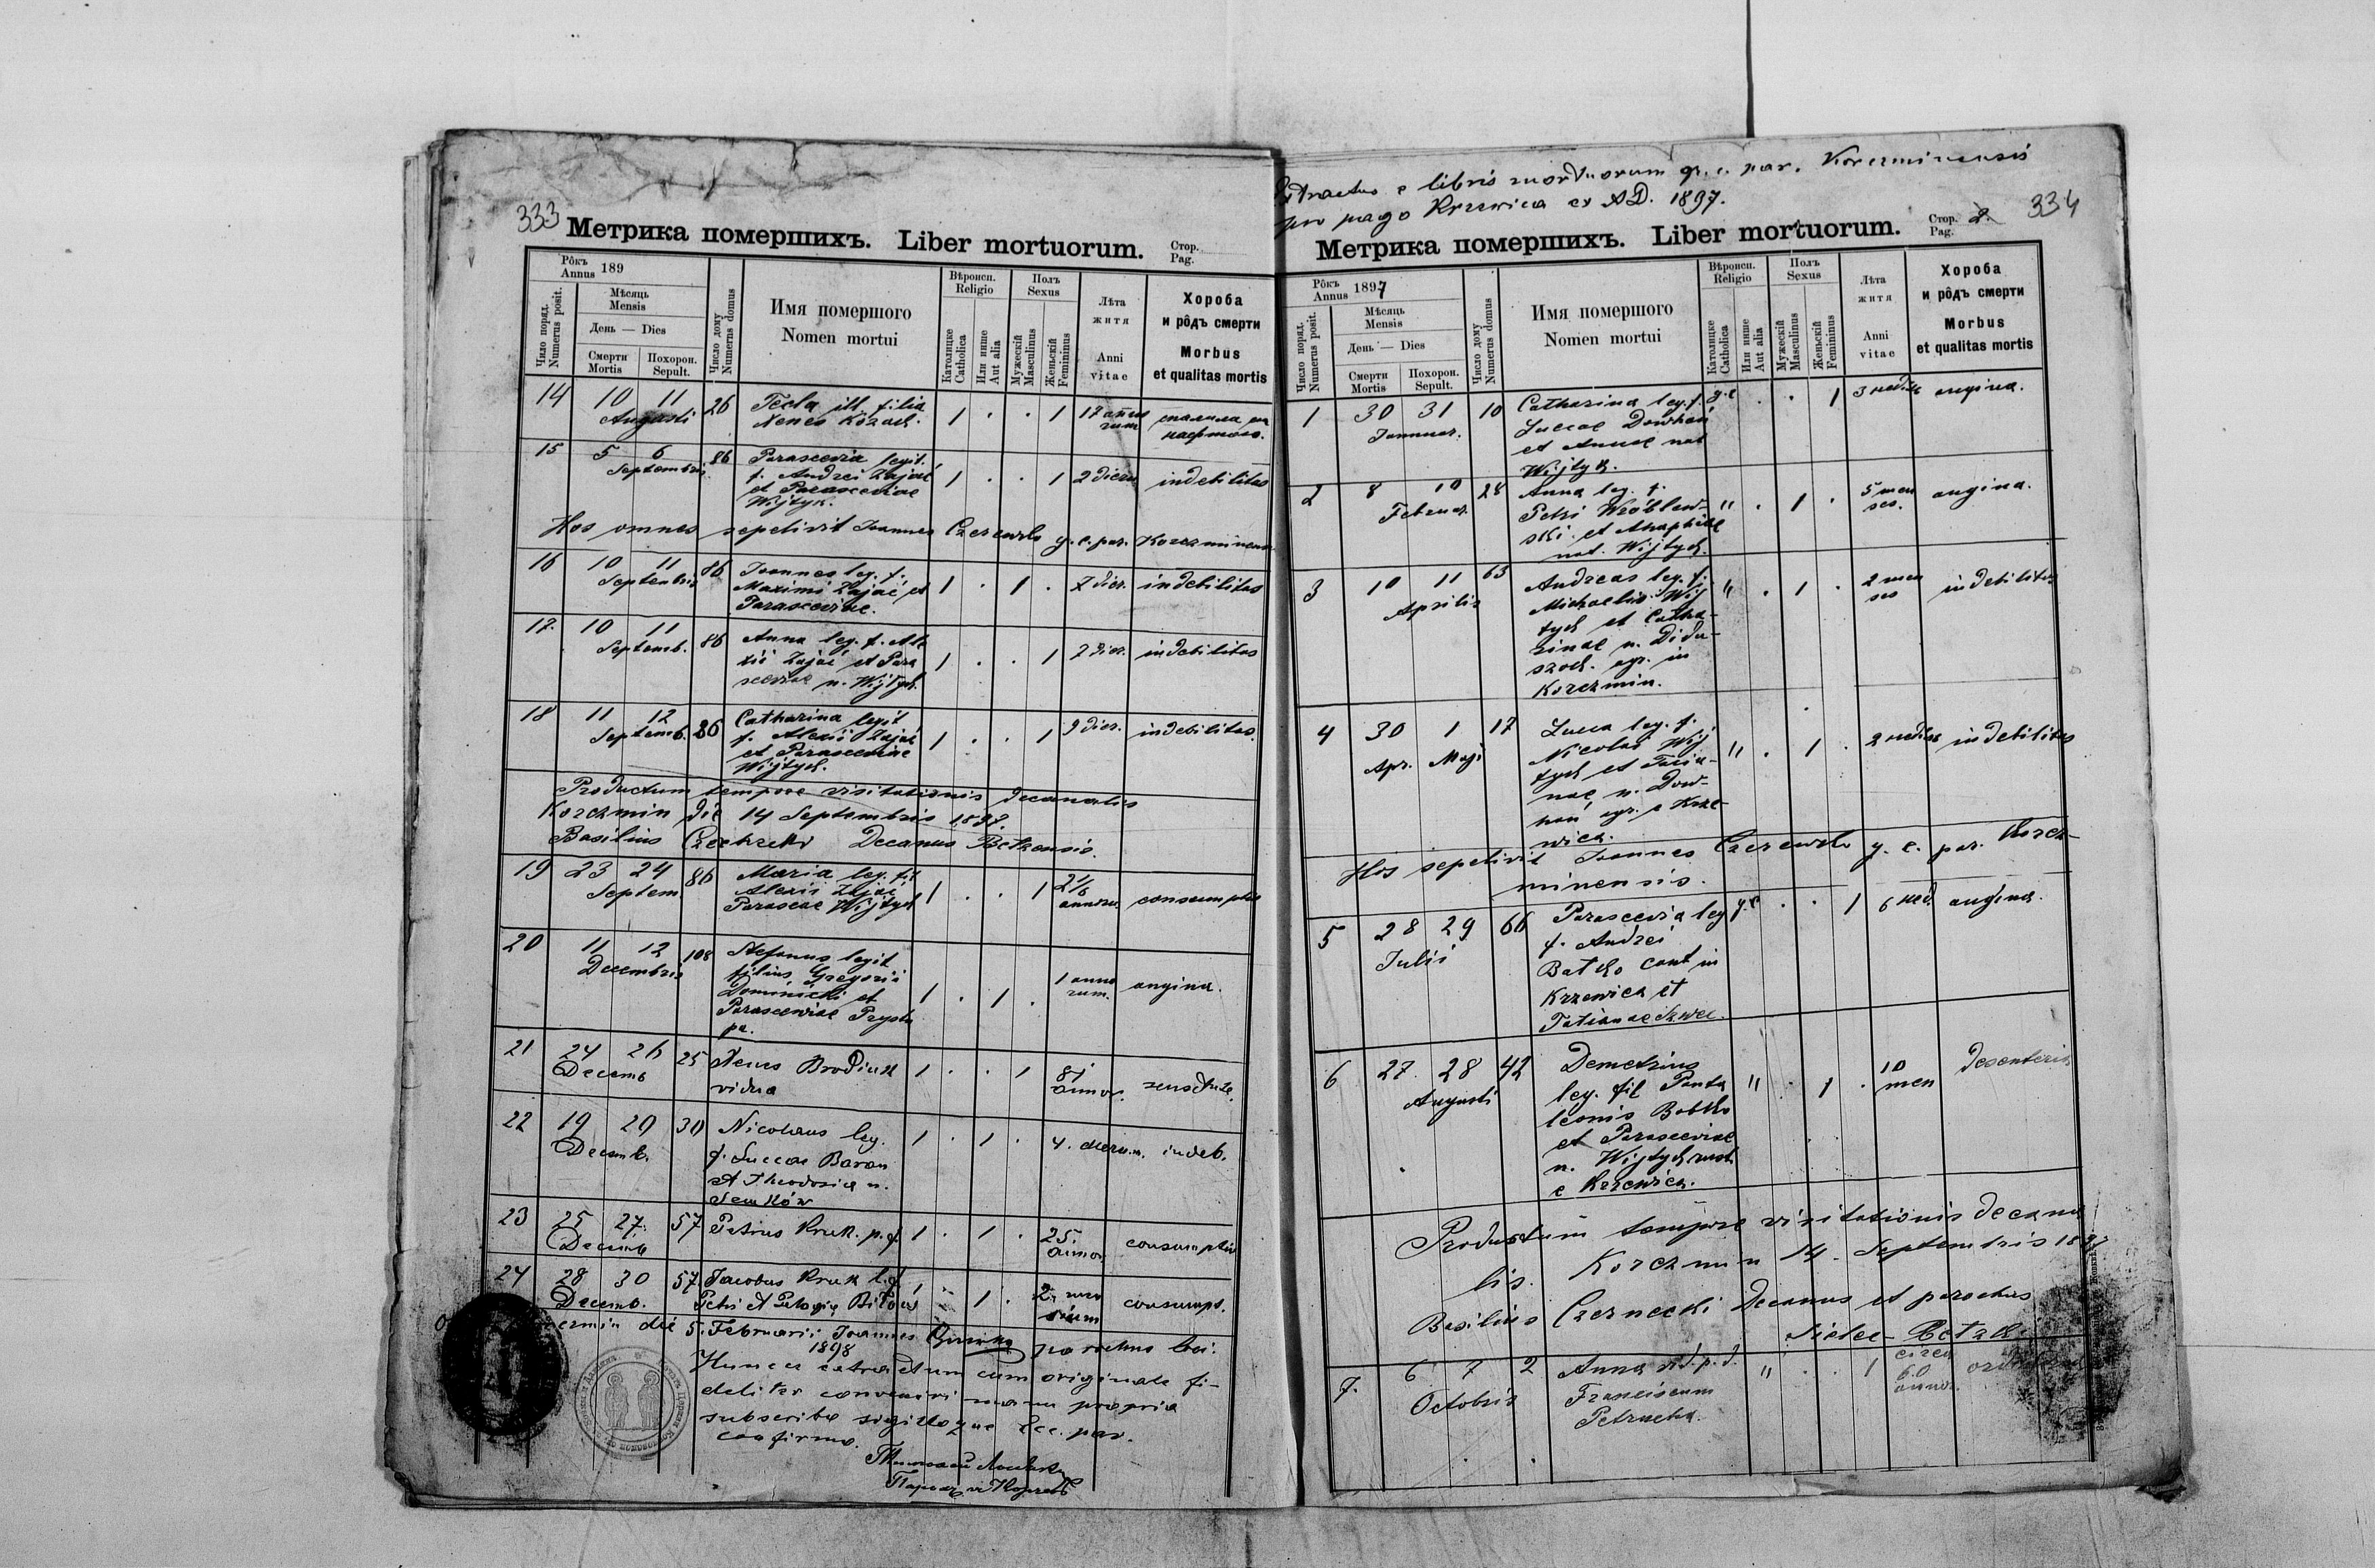 333
Метрика помершихъ. Liber mortuorum.
Стор.
Pag.
Рôкъ
Annus 189
Мѣсяць
Mensis
День — Dies
Смерти
Mortis
Похорон.
Sepult.
Чило поряд.
Numerus posit.
Число дому
Numerus domus
Имя помершого
Nomen mortui
Вѣроисп.
Religio
Католицке
Catholica
Или инше
Aut alia
Полъ
Sexus
Мужескій
Masculinus
Женьскій
Femininus
Лѣта
житя
Anni
vitae
Хороба
и рôдъ смерти
Morbus
et qualitas mortis
14 10 11 26 Tecla ill. filia 1 . . 1 17
Augusti Xenes Kozach.
15 5 6 86 Parascevia legit. 1 . . 1 2 dieru indebilitas
Septembris f. Andrei Zajac
et Parasceviae
Wijtyk.
Hos omnes sepelivit Joannes g. c. par.
16 10 11 86 Joannes leg. f. 1 . 1 . 7 dier. indebilitas
Septembris Maximi Zajać et
Parasceviae.
17. 10 11 86 Anna leg. f. Ale 1 . . 1 7 dier. indebilitas
Septemb. xii Zajać et Para
sceviae n. Wijtych.
18 11 12 86 Catharina legit 1 . . 1 9 dier. indebilitas.
Septemb. f. Alexii Zajać
et Parasceviae
Wijtych.
Productum tempore visitationis decanalis
Korczmin die 14 Septembris 1897.
Basilius Decanus
19 23 24 86 Maria leg. fil 1 . . 1 2 1/6 consumptio
Septem. Alexii Zajać annoru
Parasceae Wijtych
20 11 12 108 Stefanus legit 1 . 1 . 1 anno angina.
Decembris filius Gregorii rum.
Dominicki et
Parasceviae Prystu
pa.
21 24 26 25 Xenes Brodiuk 1 . . 1 81
Decemb vidua annor.
22 19 20 30 Nicolaus leg. 1 . 1 . 4. dierum. indeb.
Decemb. f. Luccae Baran
et Theodosia n.
Senków
23 25 27. 57 Petrus Kruk. p. d. 1 . 1 . 25. consumptio
Decemb annor
24 28 30 57. Jacobus Kruk l. f. 1 . 1 . 2. men consumpt.
Decemb. Petri et Pelagia sium
die 5. Februarii Joannes parochus loci.
1898
Hunce extractum cum originale fi-
deliter convenire manu propria
subscribo sigilloque Ecc. par.
confirmo.
Extractus e libris mortuorum gr. c. par. Korczminensis
pro pago Krzewica ex AD. 1897.
334
Метрика помершихъ. Liber mortuorum.
Стор.
Pag. 2.
Рôкъ
Annus 1897
Мѣсяць
Mensis
День — Dies
Смерти
Mortis
Похорон.
Sepult.
Число поряд.
Numerus posit.
Число дому
Numerus domus
Имя помершого
Nomen mortui
Вѣроисп.
Religio
Католицке
Catholica
Или инше
Aut alia
Полъ
Sexus
Мужескій
Masculinus
Женьскій
Femininus
Лѣта
житя
Anni
vitae
Хороба
и рôдъ смерти
Morbus
et qualitas mortis
1 30 31 10 Catharina leg. f. g. c . . 1 3 angina.
Januar. Luccae Dowhań
et Annae nat
Wijtyk.
2 8 10 28 Anna leg. f. " . 1 . 5 men angina.
Februar. Petri Wróblew- ses.
ski et
nat. Wijtych.
3 10 11 63 Andreas leg. f. " . 1 . 2 men indebilitas
Aprilis Michaelis Wij ses
tych et Catha-
rinae n. Didu-
szok. agr. in
Korczmin.
4 30 1 17 Lucca leg. f. " . 1 . 2 indebilitas
Apr. Maji Nicolai Wij
tych et Tatia-
nae n. Dow-
hań agr. e Krze-
wica.
Hos sepelivit Joannes g. c. par. Korcz-
minensis.
5 28 29 66 Parascevia leg g. c . . 1 6 angina.
Julii f. Andrei
Batko cant in
Krzewica et
Tatianae Szwec.
6 27. 28 42 Demetrius " . 1 . 10
Augusti leg. fil Panta men
leonis Bobko
et Parasceviae
n. Wijtych
e Krzewica.
Productum tempore visitationis decana
lis. Korczmin 14. Septembris 1897
Basilius Czernecki Decanus et parochus
7. 6 7 2 Anna vid. p. d. " . . 1 circa
Octobris Franciscum 60
Petrucha. annor.